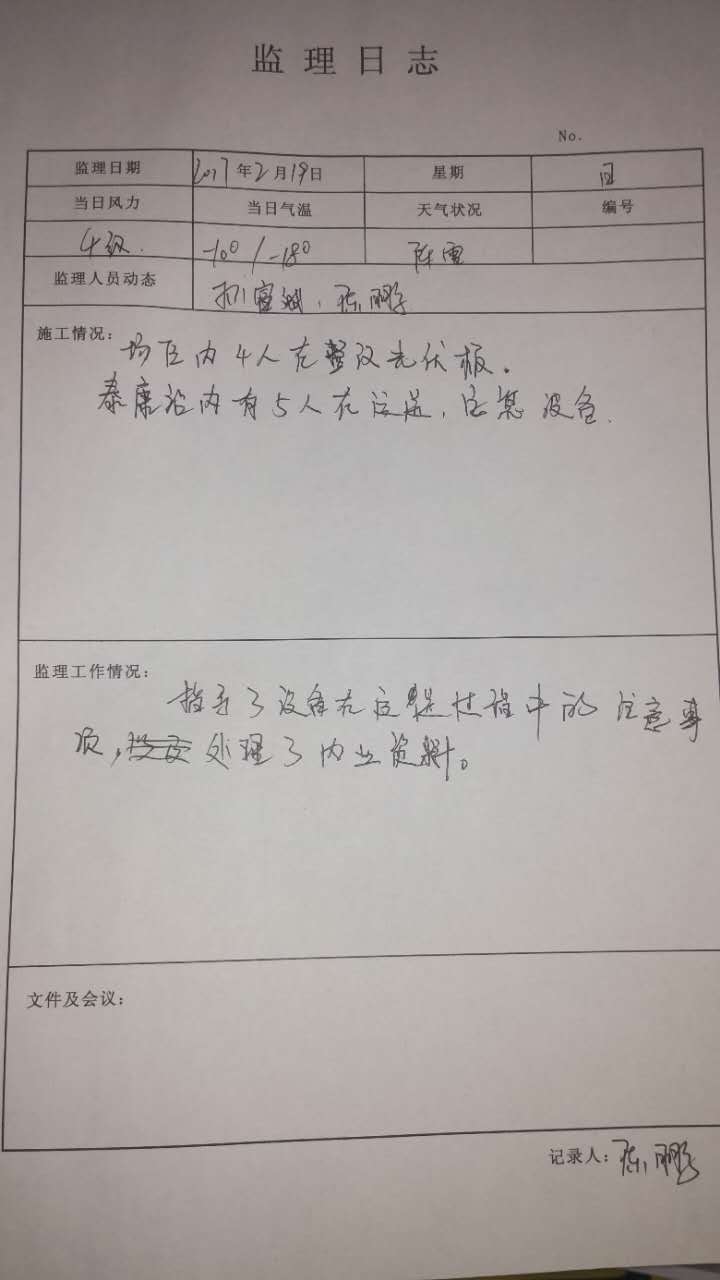 监理日志
No.
监理日期 2017年2月19日 星期 日
当日风力 当日气温 天气状况 编号
4级. -10° / -18° 阵雪
监理人员动态 陈鹏
施工情况:
场区内4人在整改光伏板.
泰康站内有5人在运送, 设备.
监理工作情况:
指导了设备在过程中的注意事
项, 处理了内业资料。
文件及会议:
记录人: 陈鹏